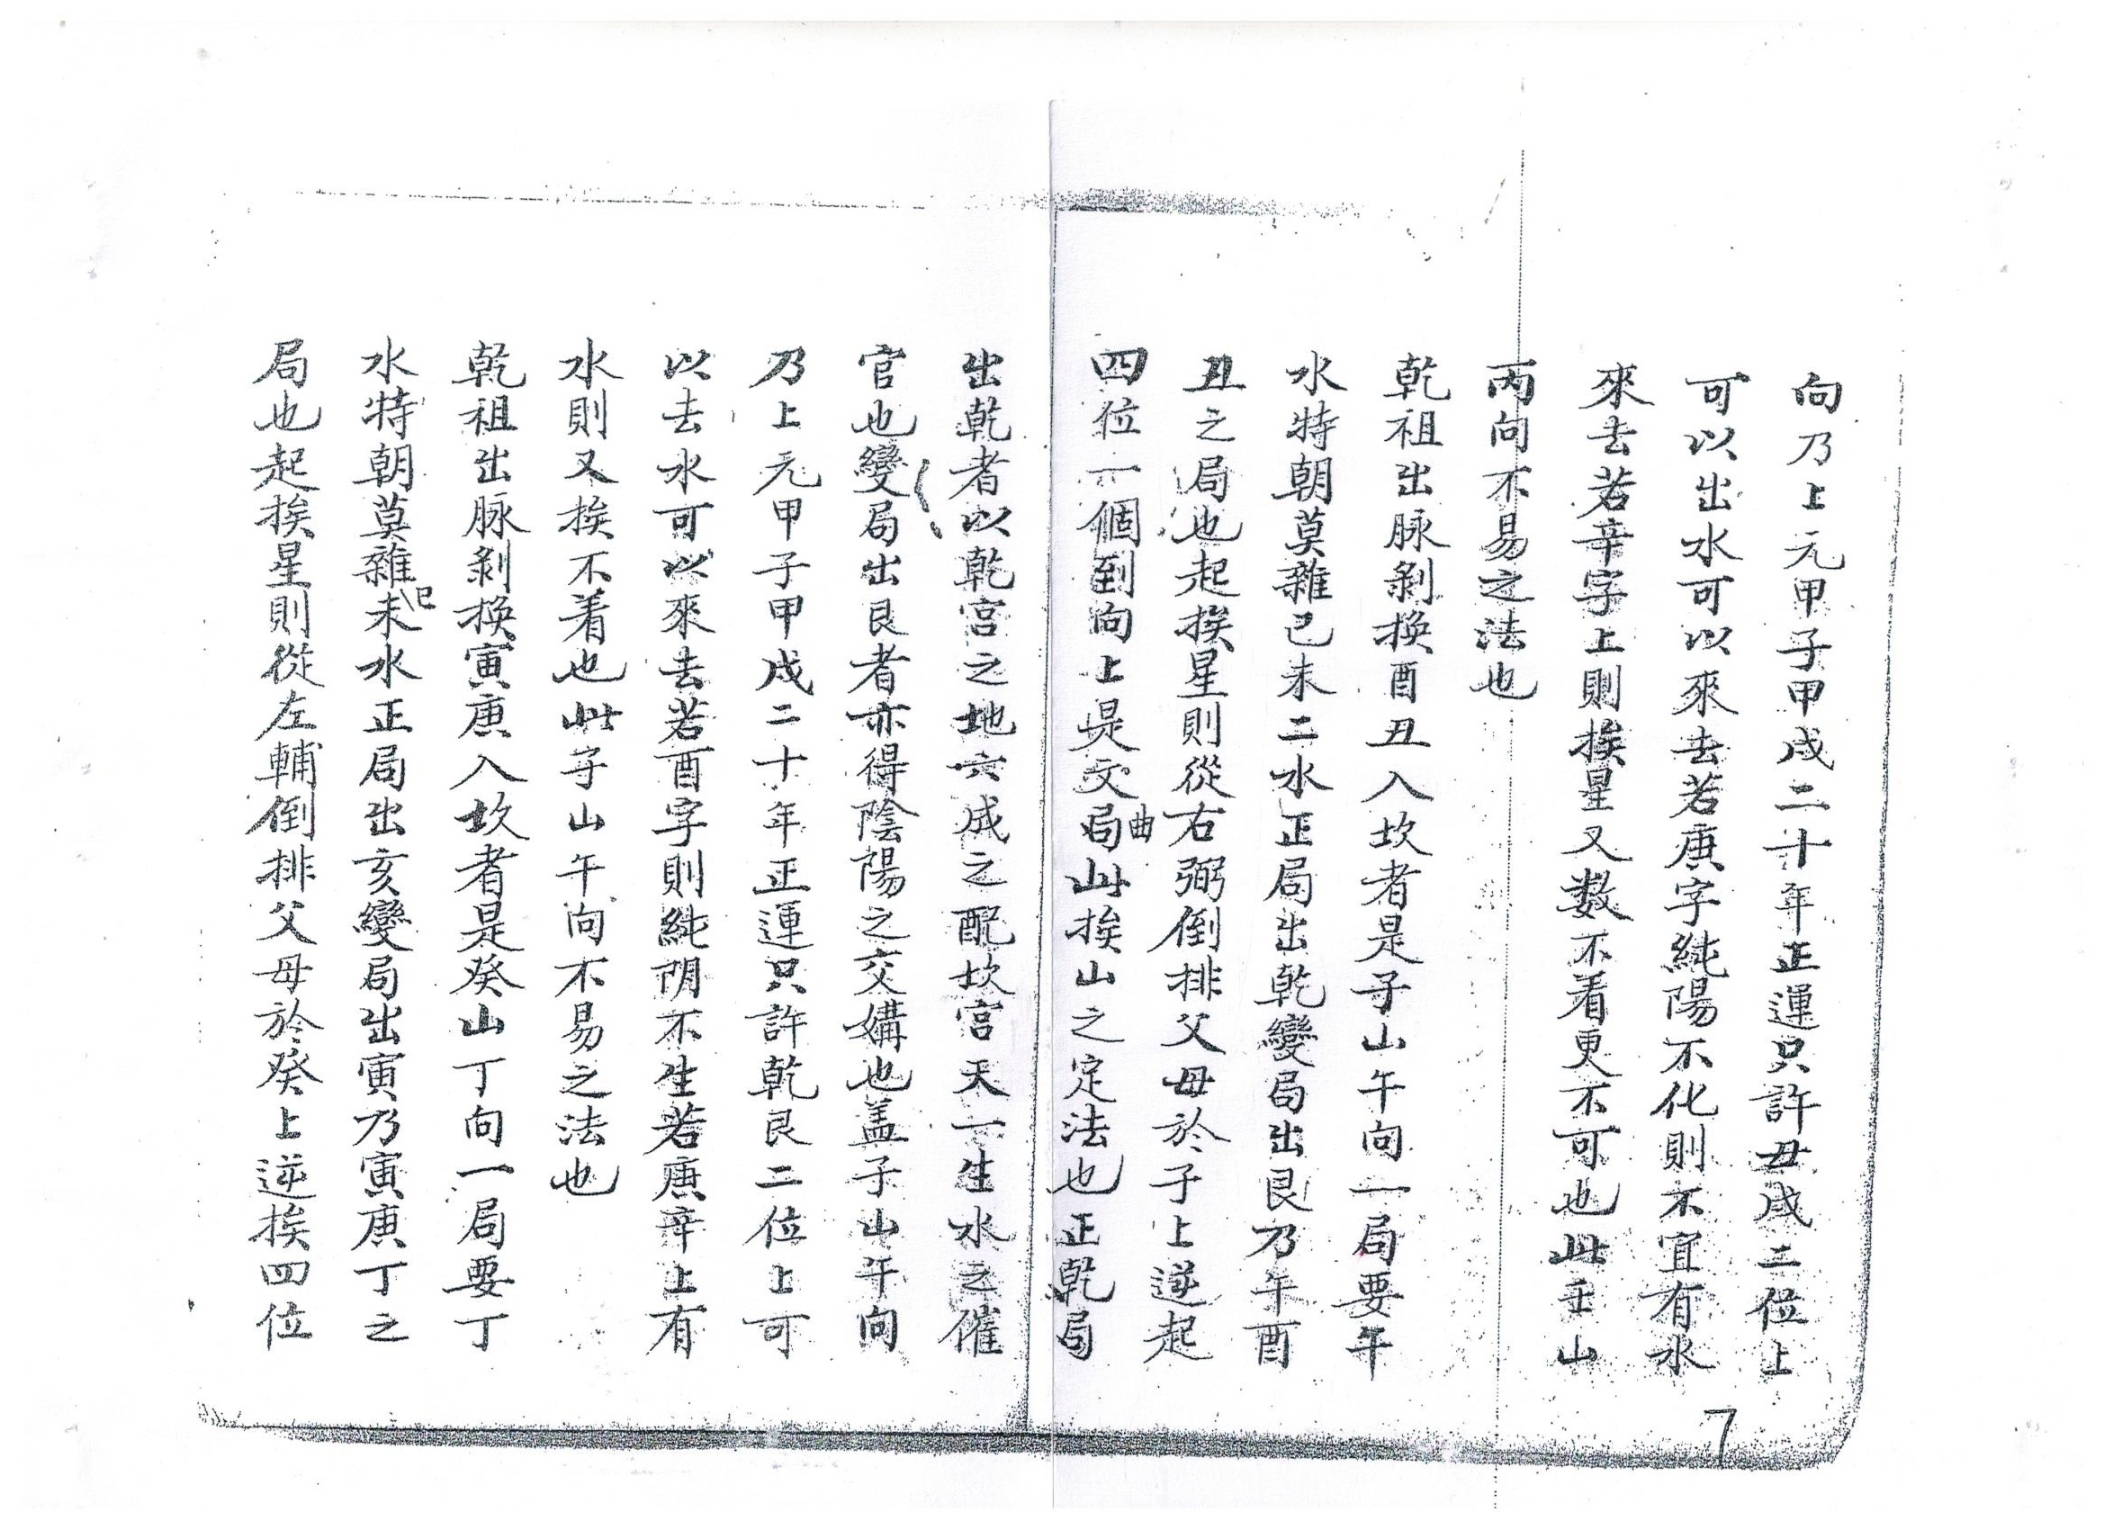 向乃上元甲子甲戌二十年正運只許丑戌二位上
可以出水可以來去若庚字純陽不化則不宜有水
來去若辛字上則挨星又数不着更不可也此壬山
丙向不易之法也
乾祖出脉剝換酉丑入坎者是子山午向一局要午
水特朝莫雜己未二水正局出乾變局出艮乃午酉
丑之局也起挨星則從右弼倒排父母於子上逆起
四位一個到向上是文曲局此挨山之定法也正乾局
出乾者以乾宮之地六成之配坎宮天一生水之催
官也變局出艮者亦得陰陽之交媾也盖子山午向
乃上元甲子甲戌二十年正運只許乾艮二位上可
以去水可以來去若酉字則純阴不生若庚辛上有
水則又挨不着也此字山午向不易之法也
乾祖出脉剝換寅庚入坎者是癸山丁向一局要丁
水特朝莫雜巳未水正局出亥變局出寅乃寅庚丁之
局也起挨星則從左輔倒排父母於癸上逆挨四位
7